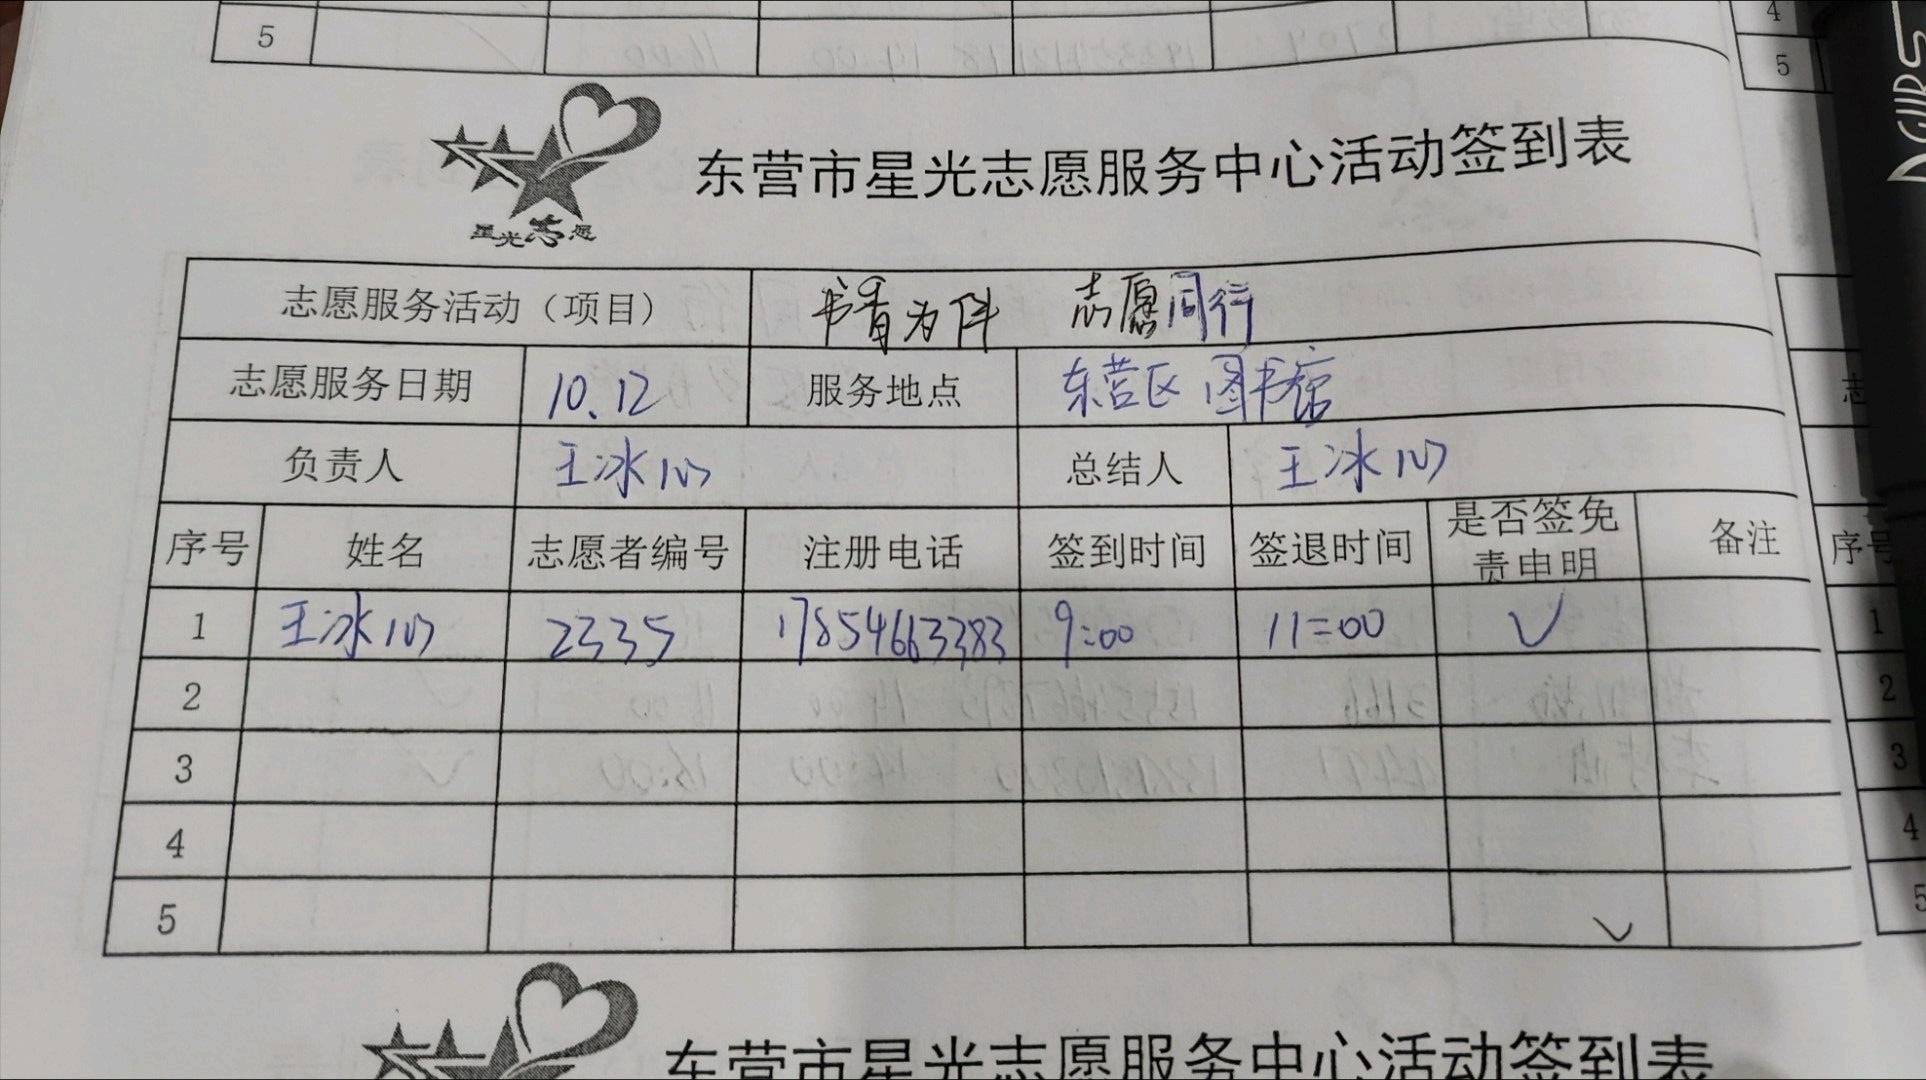 5
4
5
星光志愿
东营市星光志愿服务中心活动签到表
志愿服务活动（项目） 书香为伴 志愿同行
志愿服务日期 10.12 服务地点 东营区图书馆
负责人 王冰心 总结人 王冰心
序号 姓名 志愿者编号 注册电话 签到时间 签退时间 是否签免责申明 备注
1 王冰心 2335 17854663383 9:00 11:00 √
2
3
4
5 √
志
序号
1
2
3
4
5
东营市星光志愿服务中心活动签到表